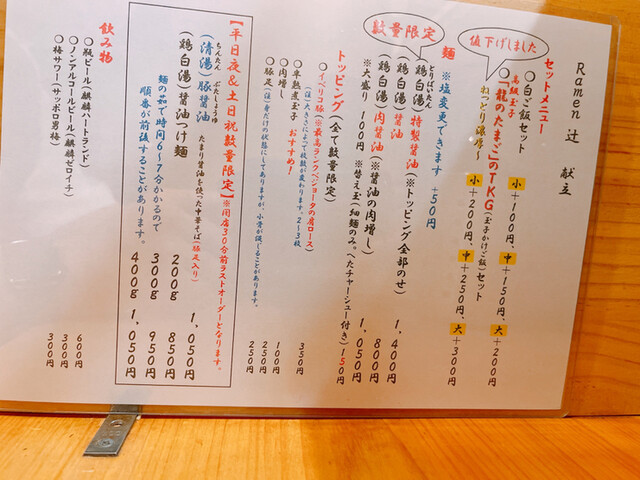 Ramen 辻 献立
値下げしました
セットメニュー
○白ご飯セット 小+100円、中+150円、大+200円
高級玉子
○「龍のたまご」のTKG(玉子かけご飯)セット
ねっとり濃厚〜 小+200円、中+250円、大+300円
数量限定
麺 ※塩変更できます +50円
とりぱいたん
(鶏白湯)特製醤油(※トッピング全部のせ) 1,400円
(鶏白湯)醤油 800円
(鶏白湯)肉醤油(※醤油の肉増し) 1,050円
※大盛り 100円 ※替え玉(細麺のみ。へたチャーシュー付き)150円
トッピング(全て数量限定)
○イベリコ豚(※最高ランクベジョータの肩ロース) 350円
(注)大きさによって枚数が変わります。2〜3枚
○半熟煮玉子 おすすめ! 100円
○肉増し 250円
○豚足(注)身だけの状態にしてありますが、小骨が混じることがあります。 250円
【平日夜&土日祝数量限定】※閉店30分前ラストオーダーとなります。
ちんたん ぶたしょうゆ
(清湯)豚醤油 たまり醤油を使った中華そば(豚足入り) 1,050円
(鶏白湯)醤油つけ麺 200g 850円
麺の茹で時間6〜7分かかるので 300g 950円
順番が前後することがあります。 400g 1,050円
飲み物
○瓶ビール(麒麟ハートランド) 600円
○ノンアルコールビール(麒麟ゼロイチ) 300円
○梅サワー(サッポロ男梅) 300円